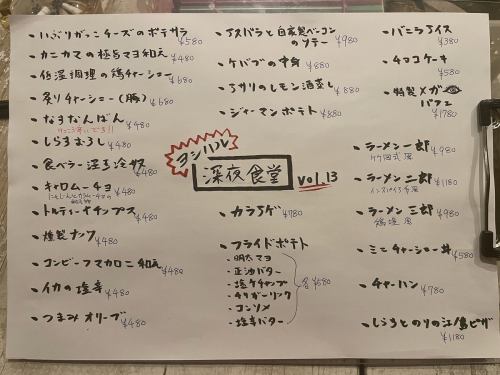 ・いぶりがっこチーズのポテサラ ¥580
・カニカマの柚子マヨ和え ¥480
・低温調理の鶏チャーシュー ¥680
・炙りチャーシュー(豚) ¥680
・なすなんばん ¥480
けっこう辛いです!!
・しらすおろし ¥480
・食べラー温玉冷奴 ¥480
・キャロムーチョ ¥480
・トルティーヤチップス ¥480
・燻製ナッツ ¥480
・コンビーフマカロニ和え ¥480
・イカの塩辛 ¥480
・つまみオリーブ ¥480
・アスパラと自家製ベーコンのソテー ¥980
・ケバブの中身 ¥880
・アサリのレモン酒蒸し ¥880
・ジャーマンポテト ¥880
深夜食堂
vol.13
・カラアゲ ¥780
・フライドポテト
・明太マヨ
・正油バター
・塩ケチャップ
・チリガーリック
・コンソメ
・塩辛バター
各¥580
・バニラアイス ¥380
・チョコケーキ ¥580
・特製メガパフェ ¥1780
・ラーメン一郎 ¥980
・ラーメン二郎 ¥1180
インスパイア系
・ラーメン三郎 ¥980
鶏塩風
・ミニチャーシュー丼 ¥580
・チャーハン ¥780
・しらすとのりの江ノ島ピザ ¥1180